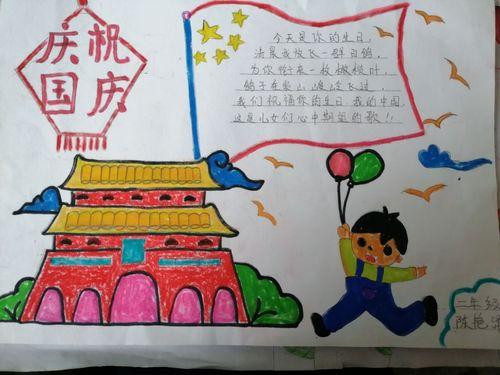 庆祝
国庆
今天是你的生日,
清晨我放飞一群白鸽,
为你衔来一枚橄榄叶,
鸽子在崇山峻岭飞过,
我们祝福你的生日,我的中国,
这是儿女们心中期望的歌!!
二年级
陈艳